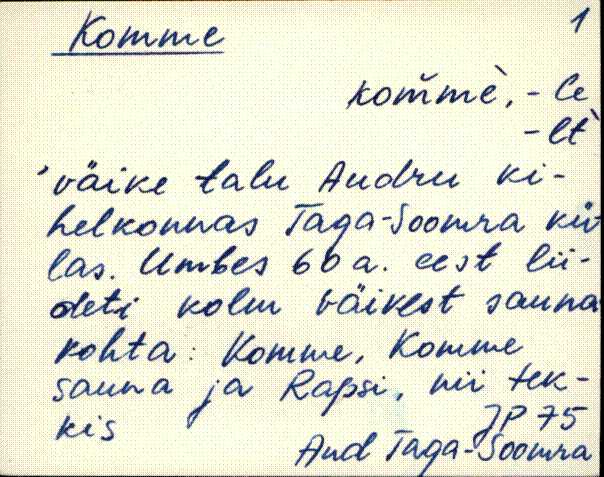 Komme 1
kom̆mè, -le
-lt̀
'väike talu Audru ki-
helkonnas Taga-Soomra kü-
las. Umbes 60 a. eest lii-
deti kolm väikest sauna-
kohta: Komme, Komme
sauna ja Rapsi, nii tek-
kis JP 75
Aud Taga-Soomra